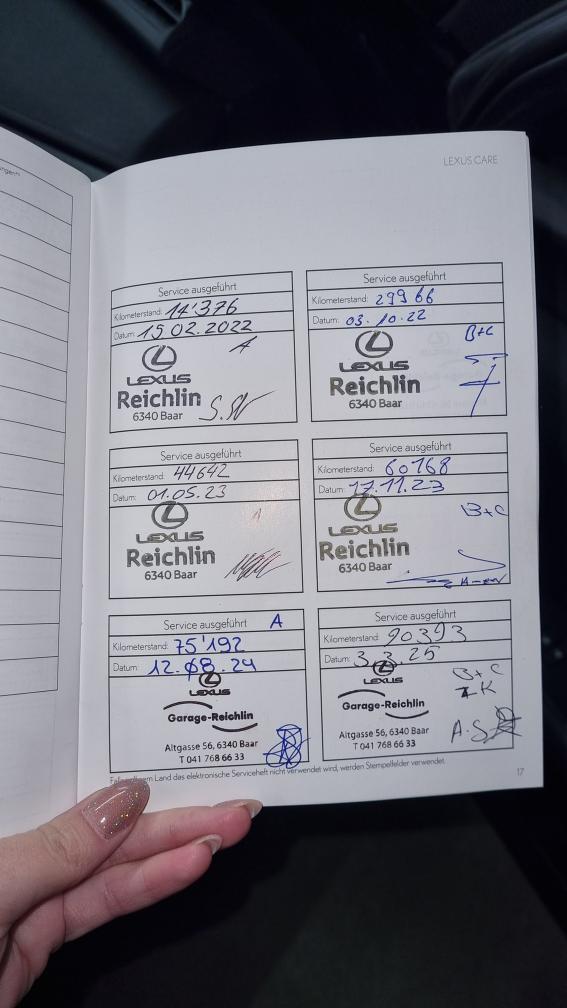 LEXUS CARE
Service ausgeführt
Kilometerstand: 14'376
Datum: 15.02.2022
A
LEXUS
Reichlin
6340 Baar
Service ausgeführt
Kilometerstand: 29966
Datum: 03.10.22
B+C
LEXUS
Reichlin
6340 Baar
Service ausgeführt
Kilometerstand: 44642
Datum: 01.05.23
A
LEXUS
Reichlin
6340 Baar
Service ausgeführt
Kilometerstand: 60168
Datum: 17.11.23
B+C
LEXUS
Reichlin
6340 Baar
Service ausgeführt A
Kilometerstand: 75'192
Datum: 12.08.24
LEXUS
Garage-Reichlin
Altgasse 56, 6340 Baar
T 041 768 66 33
Service ausgeführt
Kilometerstand: 90393
Datum: 3.3.25
LEXUS
B+C
Garage-Reichlin
Altgasse 56, 6340 Baar
T 041 768 66 33
Land das elektronische Serviceheft nicht verwendet wird, werden Stempelfelder verwendet.
17